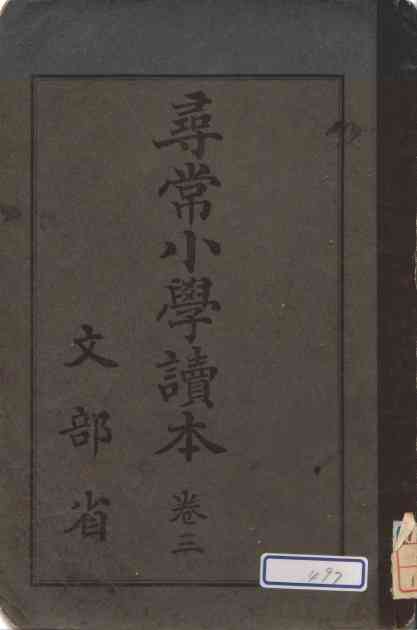 尋常小學讀本 卷三
文部省
497